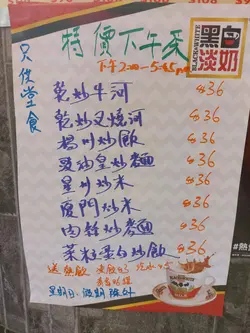 特價下午茶
黑白淡奶
BLACK&WHITE
只供堂食
下午2:00-5:45pm
乾炒牛河 $36
乾炒叉燒河 $36
揚州炒飯 $36
豉油皇炒麵 $36
星州炒米 $36
廈門炒米 $36
肉絲炒麵 $36
菜粒蛋白炒飯 $36
送熱飲 凍飲
星期日 假期 除外